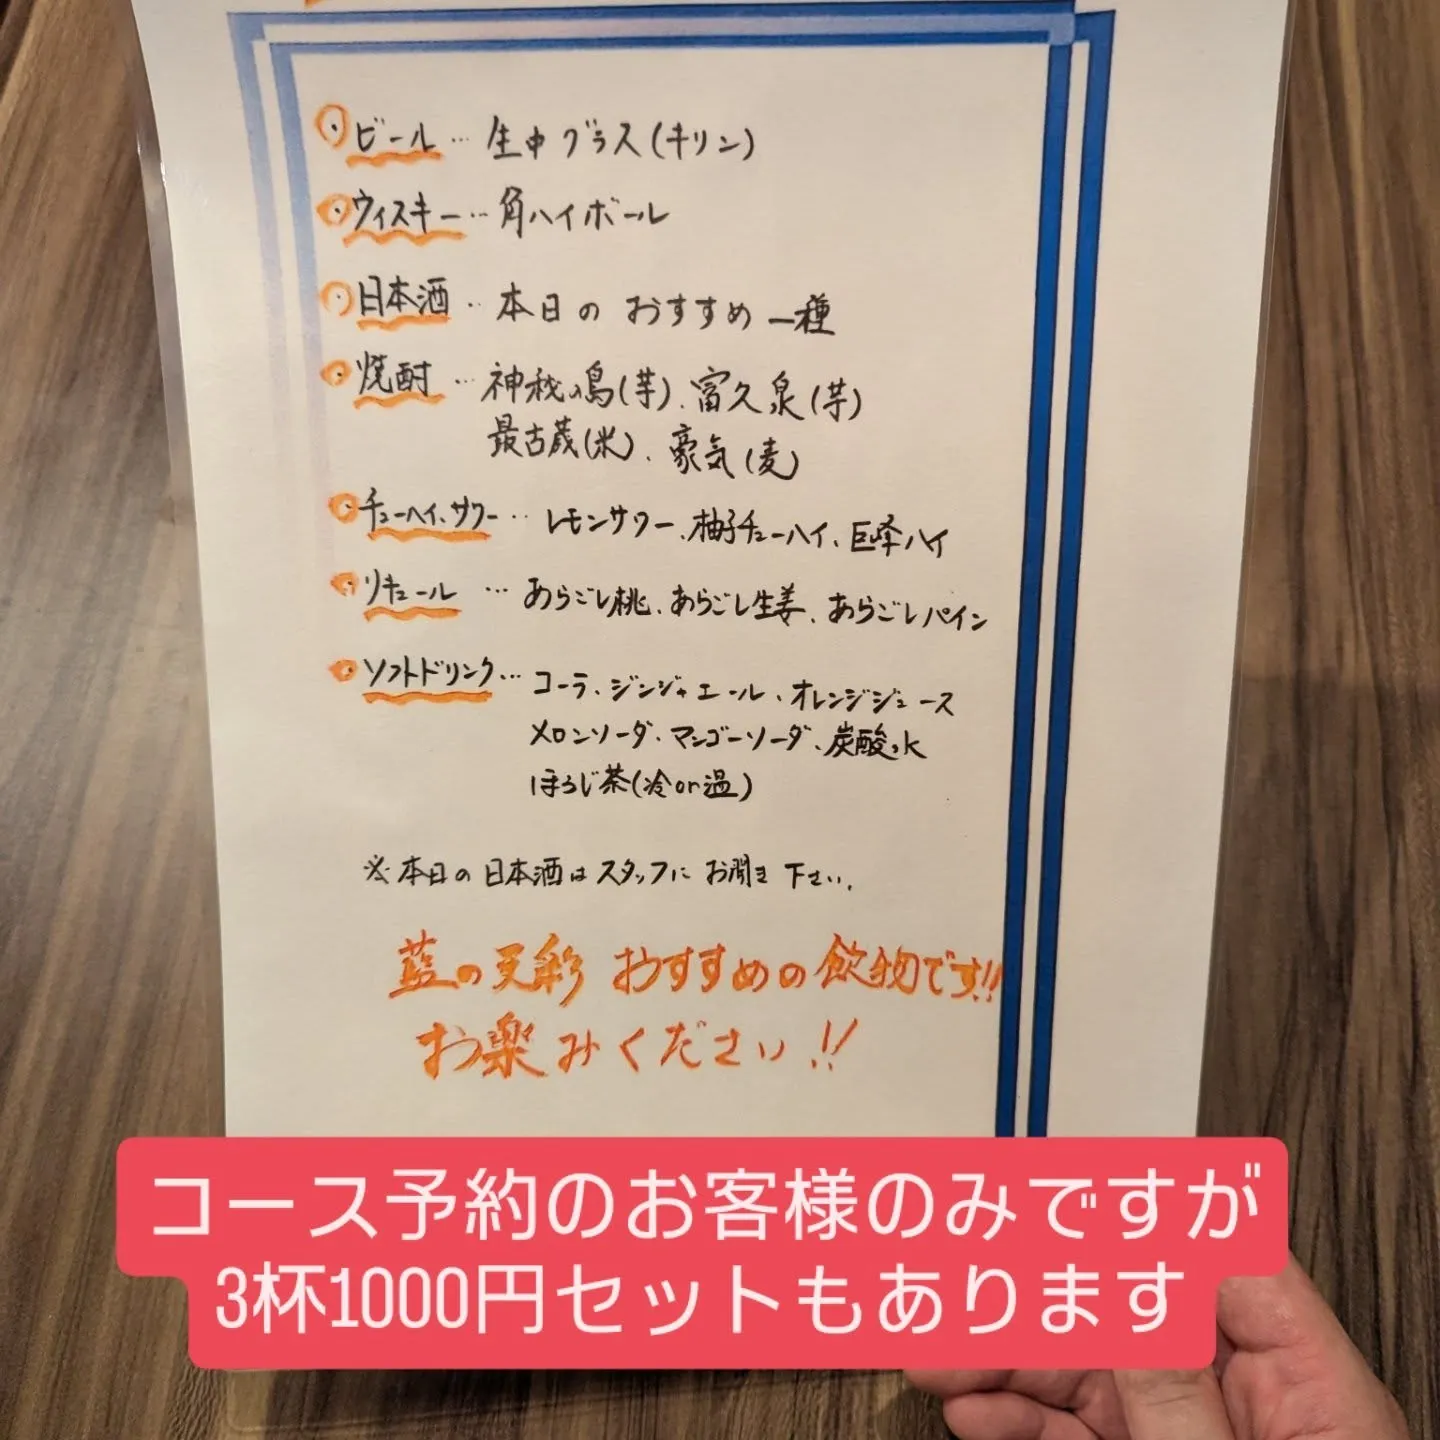 ビール… 生中グラス(キリン)
ウィスキー… 角ハイボール
日本酒… 本日の おすすめ 一種
焼酎… 神秘の島(芋)、富久泉(芋)
最古蔵(米)、豪気(麦)
チューハイ、サワー… レモンサワー、柚子チューハイ、巨峰ハイ
リキュール… あらごし桃、あらごし生姜、あらごしパイン
ソフトドリンク… コーラ、ジンジャエール、オレンジジュース
メロンソーダ、マンゴーソーダ、炭酸水
ほうじ茶(冷or温)
※本日の日本酒はスタッフにお聞き下さい。
藍の天彩 おすすめの飲物です!!
お楽みください!!
コース予約のお客様のみですが
3杯1000円セットもあります